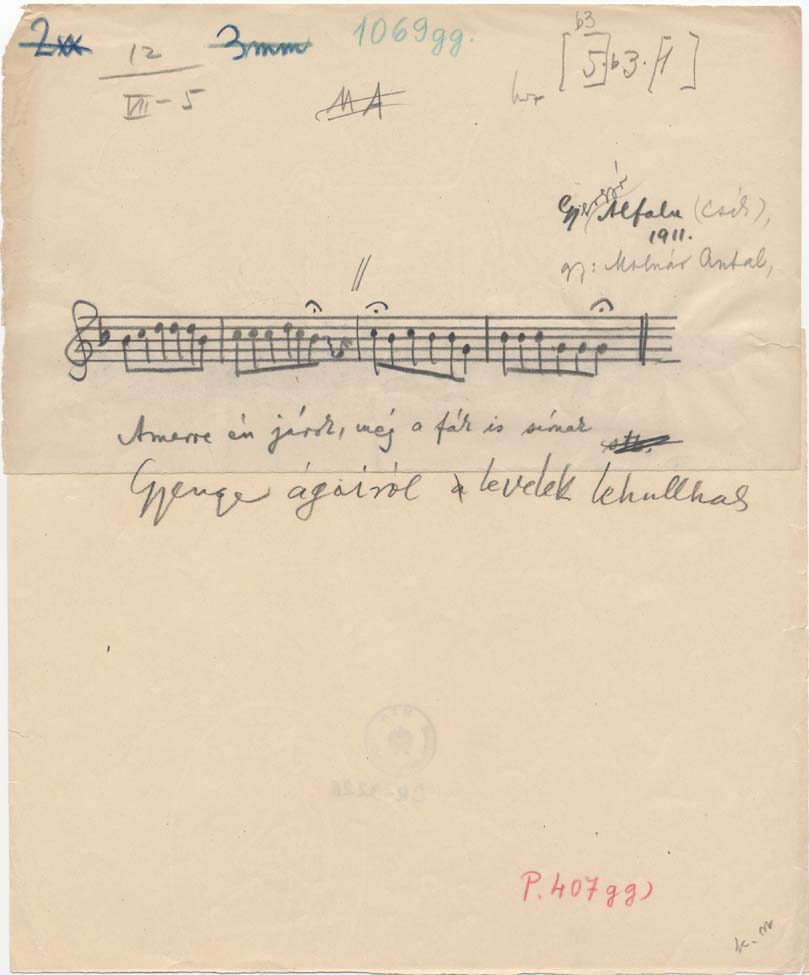 2xx 3mm 1069gg.
12
VII-5
MA
b3
[5] b3. [1]
Gyergyó
Alfalu (Csík),
1911.
gy: Molnár Antal,
Amerre én járok, még a fák is sírnak stb.
Gyenge ágairól a levelek lehullnak
P. 407gg)